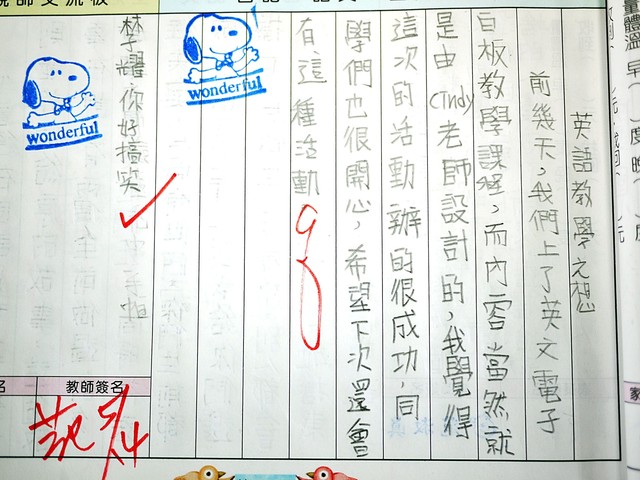 英語教學之想
前幾天，我們上了英文電子
白板教學課程，而內容當然就
是由Cindy老師設計的，我覺得
這次的活動辦的很成功，同
學們也很開心，希望下次還會
有這種活動
wonderful
李耀你好搞笑
wonderful
教師簽名